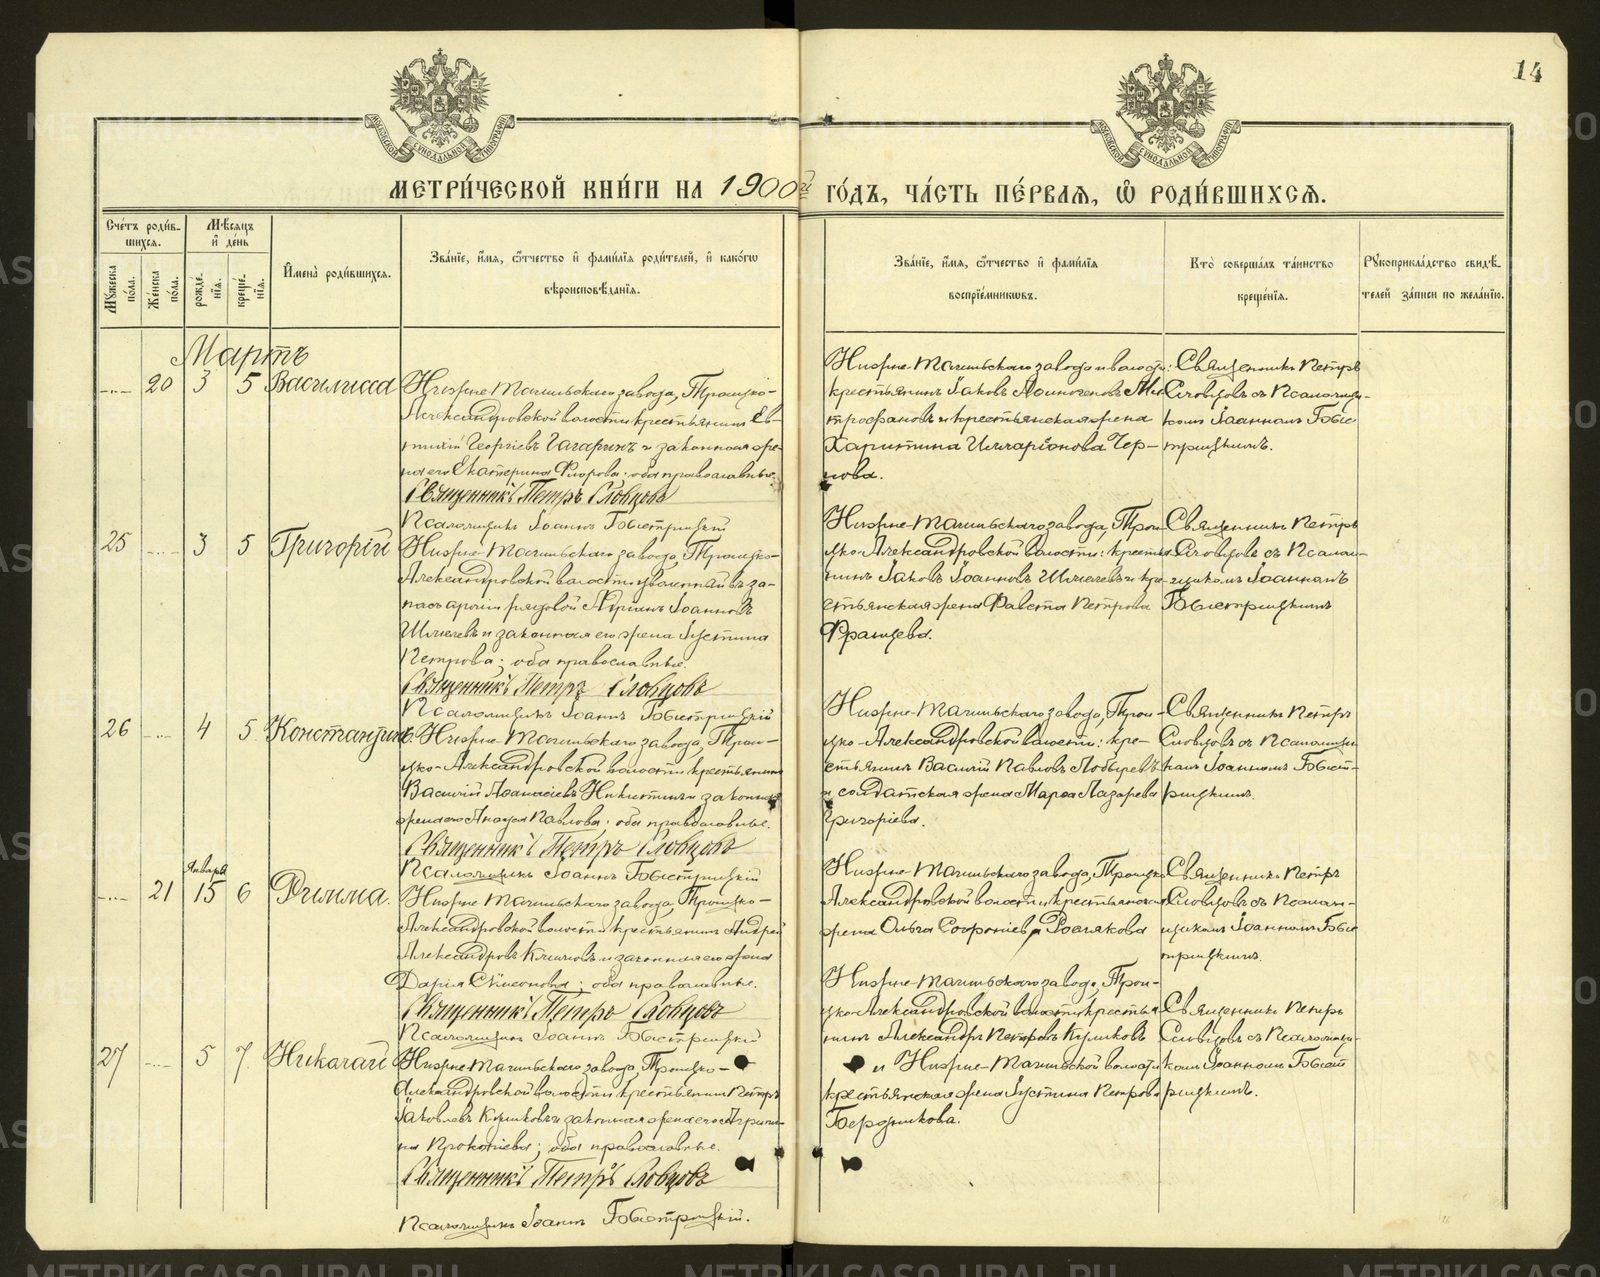 14
МОСКОВСКОЙ СѴНОДАЛЬНОЙ ТИПОГРАФІИ
МОСКОВСКОЙ СѴНОДАЛЬНОЙ ТИПОГРАФІИ
МЕТРИ́ЧЕСКОЙ КНИ́ГИ НА 1900й ГО́ДЪ, ЧА́СТЬ ПЕ́РВАЯ, Ѡ РОДИ́ВШИХСЯ.
Сче́тъ роди́в-
шихся.
Му́жеска по́ла.
Же́нска по́ла.
Мѣ́сяцъ
и҆ де́нь
рожде́нїя.
креще́нїя.
И҆мена̀ роди́вшихся.
Зва́нїе, и҆́мя, ѻ҆́тчество и҆ фами́лїя роди́телей, и҆ како́гѡ
вѣроисповѣ́данїя.
Зва́нїе, и҆́мя, ѻ҆́тчество и҆ фами́лїя
воспрїе́мникѡвъ.
Кто̀ соверша́лъ та́инство
креще́нїя.
Рꙋкоприкла́дство свидѣ́-
телей за́писи по жела́нїю.
Мартъ
20 3 5 Василисса
Нижне-Тагильскаго завода, Троицко-
Александровской волости крестьянинъ Ев-
тихій Георгіевъ Гагаринъ и законная же-
на его Екатерина Флорова; оба православные.
Священникъ Петръ Словцовъ
Псаломщикъ Іоаннъ Быстрицкій
Нижне-Тагильскаго завода и волости:
крестьянинъ Іаковъ Ми-
трофановъ и крестьянская жена
Харитина Илларіонова Чер-
нова.
Священникъ Петръ
Словцовъ съ Псаломщи-
комъ Іоанномъ Бы-
стрицкимъ.
25 3 5 Григорій
Нижне-Тагильскаго завода, Троицко-
Александровской волости уволенный въ за-
пасъ арміи рядовой Адріанъ Іоанновъ
Шмелевъ и законная его жена Іустина
Петрова; оба православные.
Священникъ Петръ Словцовъ
Псаломщикъ Іоаннъ Быстрицкій
Нижне-Тагильскаго завода, Трои-
цко-Александровской волости: крестья-
нинъ Іаковъ Іоанновъ Шмелевъ и кре-
стьянская жена Фавста Петрова
Священникъ Петръ
Словцовъ съ Псалом-
щикомъ Іоанномъ
Быстрицкимъ
26 4 5 Константинъ.
Нижне-Тагильскаго завода, Трои-
цко-Александровской волости крестьянинъ
Василій Аѳанасіевъ Никитинъ и законная
жена его Павлова; оба православные.
Священникъ Петръ Словцовъ
Псаломщикъ Іоаннъ Быстрицкій
Нижне-Тагильскаго завода, Трои-
цко-Александровской волости: кре-
стьянинъ Василій Павловъ
и солдатская жена Марѳа Лазарева
Григоріева.
Священникъ Петръ
Словцовъ съ Псаломщи-
комъ Іоанномъ Быст-
рицкимъ.
Января
21 15 6 Римма.
Нижне-Тагильскаго завода, Троицко-
Александровской волости крестьянинъ Андрей
Александровъ Климовъ и законная его жена
Дарія Симеонова; оба православные.
Священникъ Петръ Словцовъ
Псаломщикъ Іоаннъ Быстрицкій
Нижне-Тагильскаго завода, Троицко
Александровской волости крестьянская
жена Ольга Софроніева Рослякова
Священникъ Петръ
Словцовъ съ Псалом-
щикомъ Іоанномъ Бы-
стрицкимъ.
27 5 7 Николай
Нижне-Тагильскаго завода, Троицко-
Александровской волости крестьянинъ Петръ
Іаковлевъ Куликовъ и законная жена его Агрипи-
на Прокопіева; оба православные.
Священникъ Петръ Словцовъ
Псаломщикъ Іоаннъ Быстрицкій.
Нижне-Тагильскаго завода, Трои-
цко-Александровской волости крестья-
нинъ Александръ Петровъ Куликовъ
и Нижне-Тагильской волости
крестьянская жена Іустина Петрова
Бердникова.
Священникъ Петръ
Словцовъ съ Псаломщи-
комъ Іоанномъ Быст-
рицкимъ.
METRIKI.GASO-URAL.RU